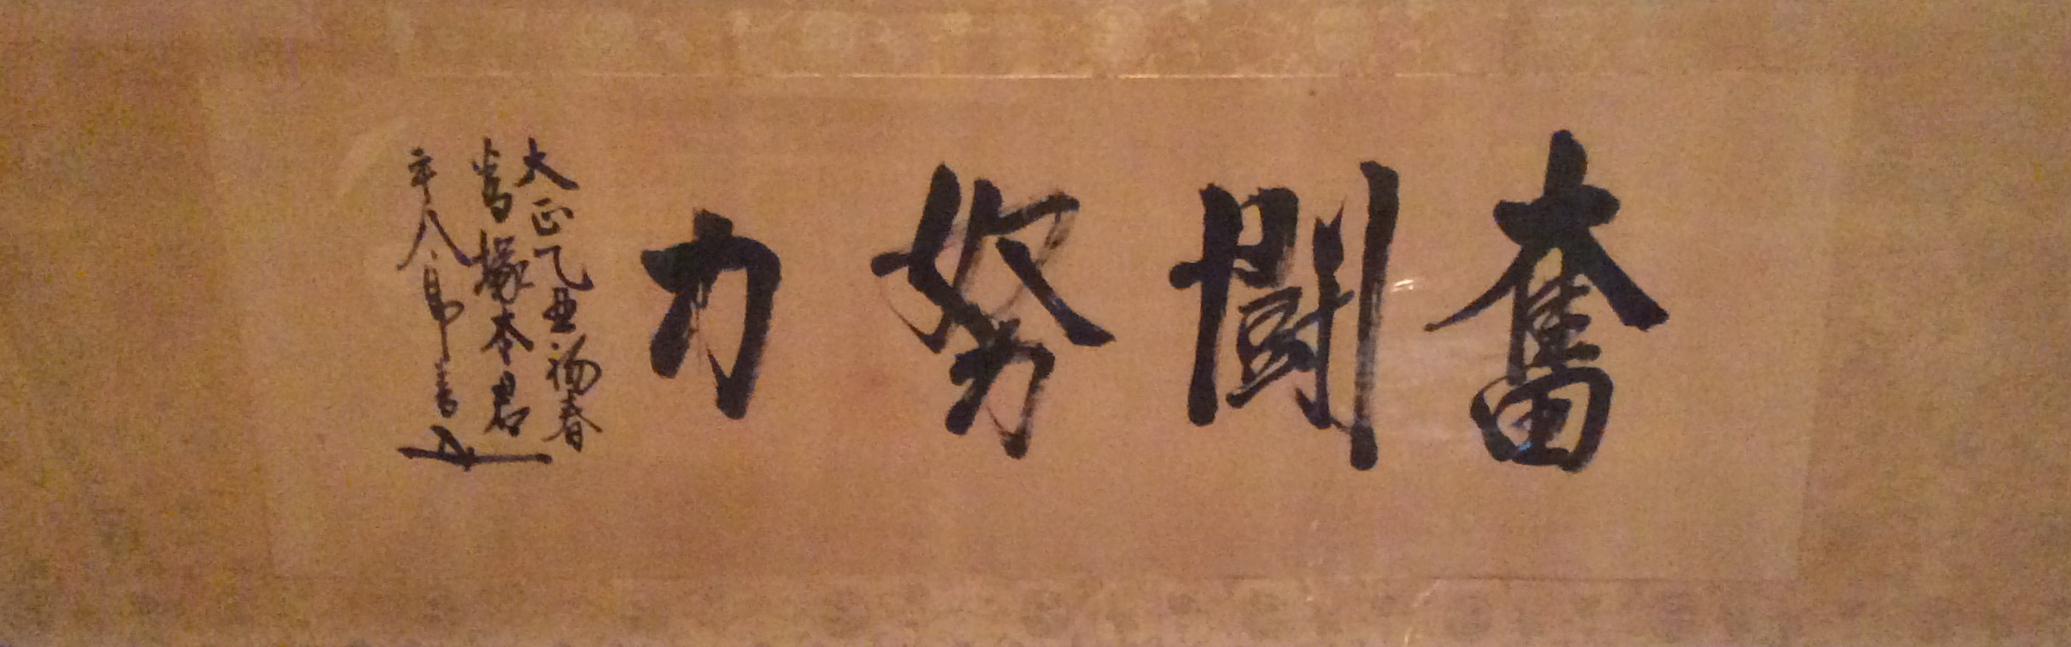 奮闘努力
大正乙丑陽春
為塚本君
平八郎書